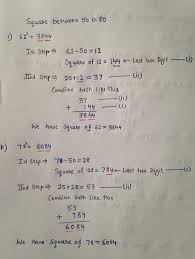 Square between 50 to 80
1) 62² = 3844
Ist Step → 62-50=12
Square of 12 = 144 ← Last two Digit — (i)
IInd Step → 25+12 = 37 — (ii)
Combine both like this
37 — (ii)
+ 144 — (i)
3844
We have Square of 62 = 3844
78² = 6084
Ist Step → 78-50 = 28
Square of 28 = 784 → Last two Digit — (i)
IInd Step ⇒ 25+28 = 53 — (ii)
Combine both like this
53
+ 784
6084
We have Square of 78 = 6084